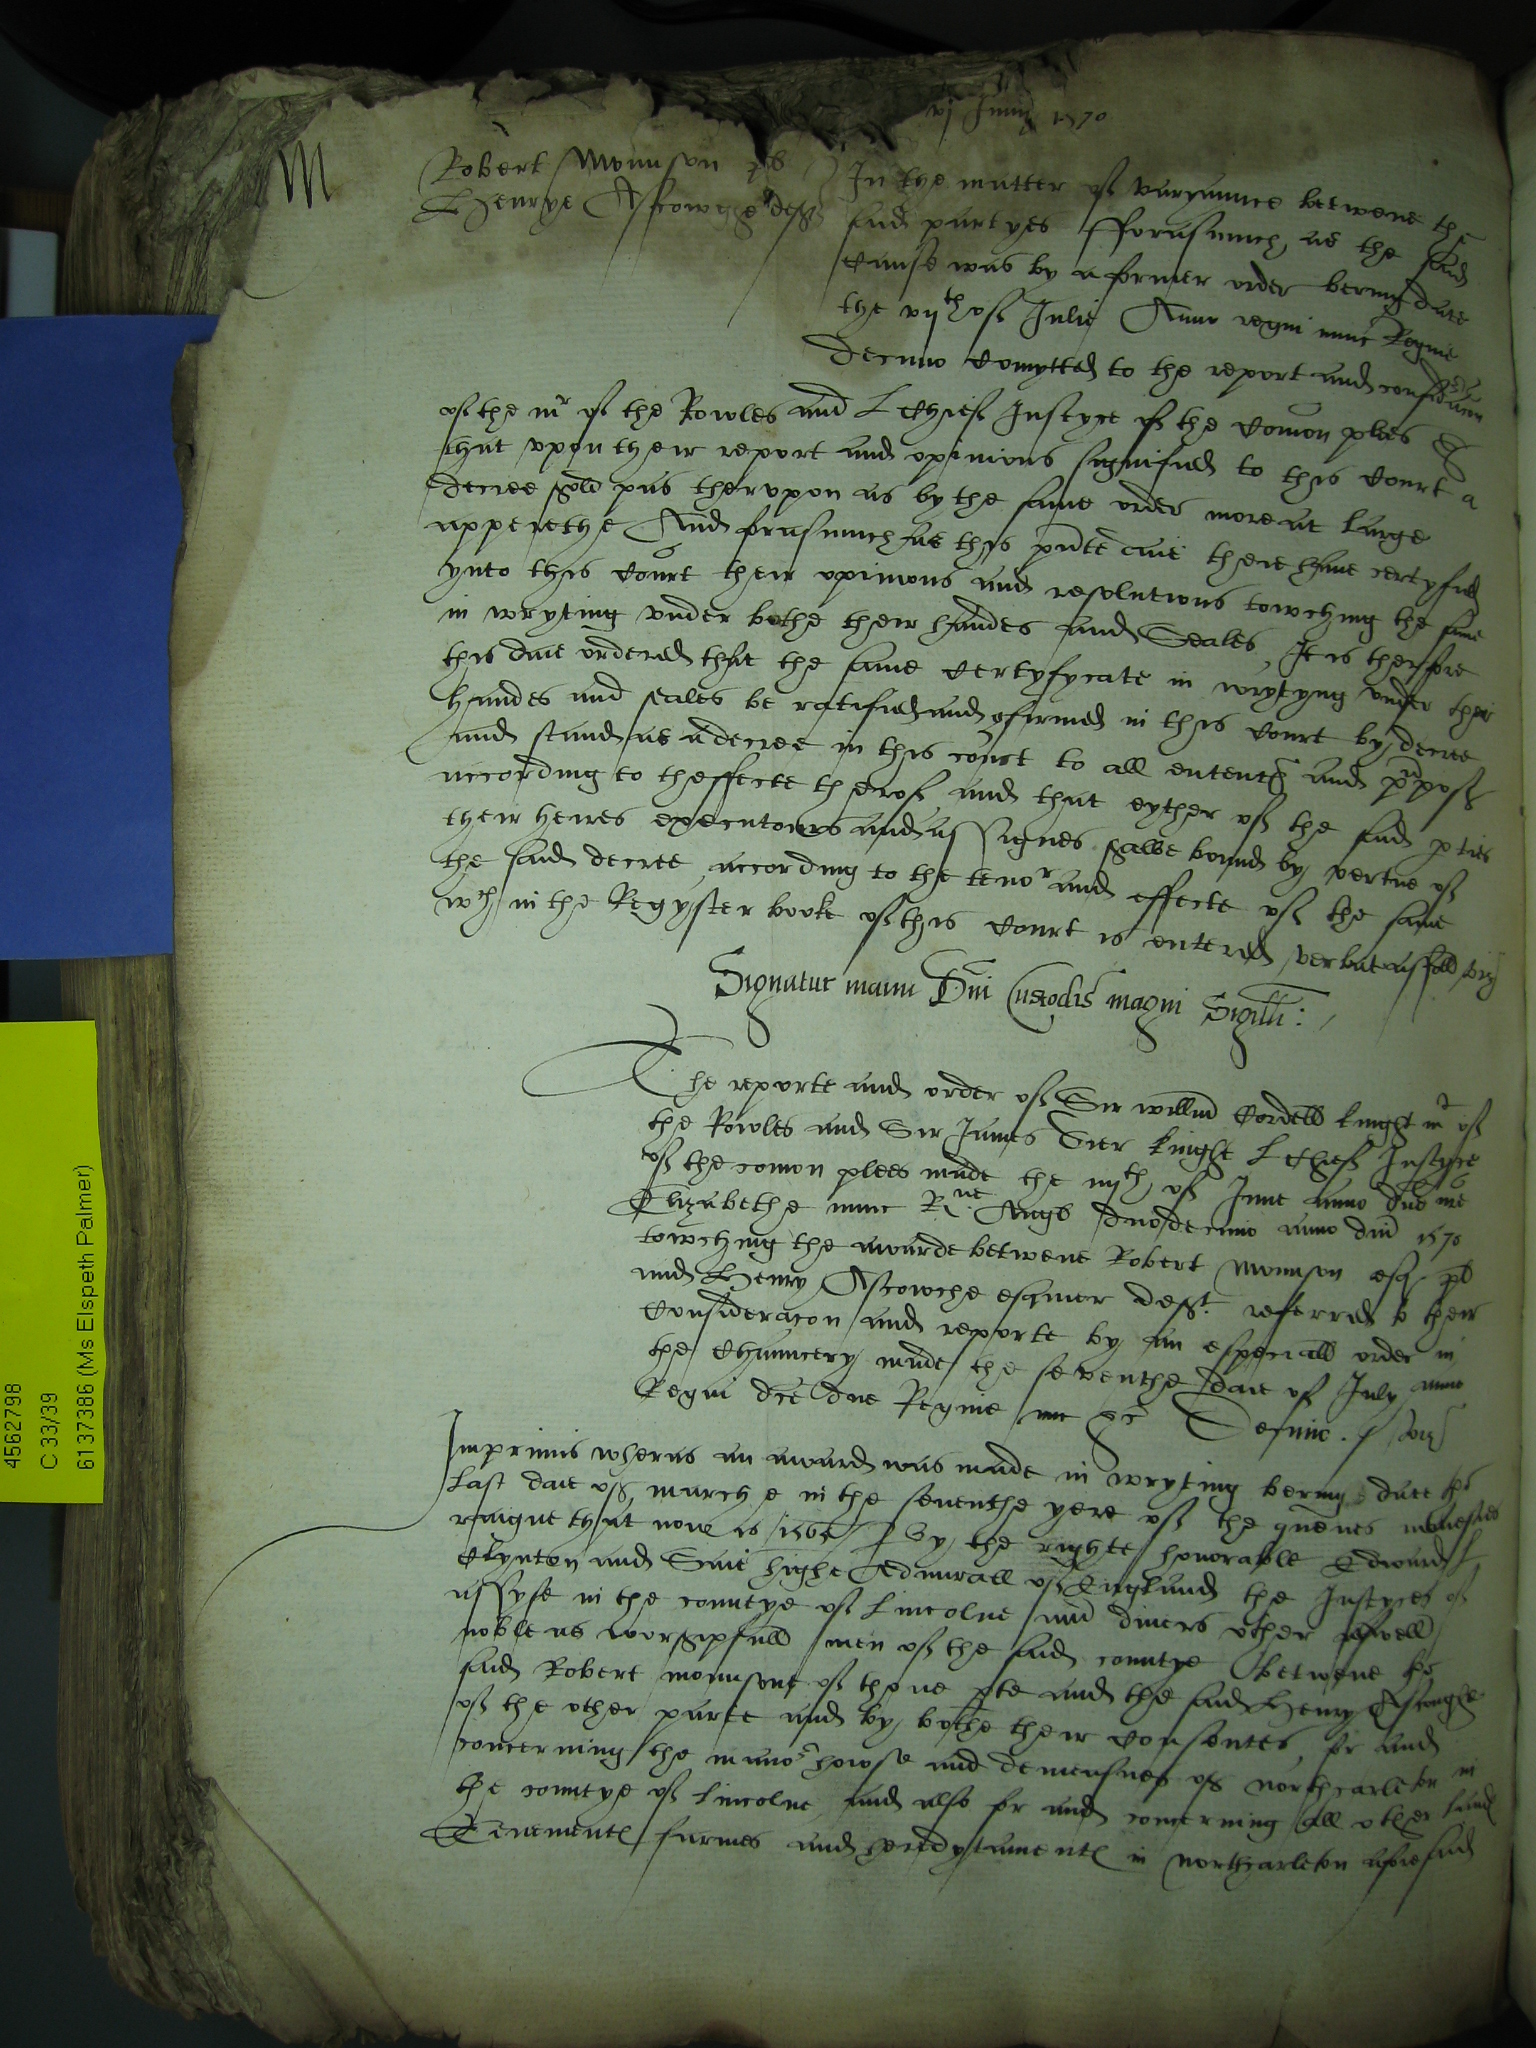 vj Junij 1570
M
Robert Mounson pls
Henrye Ascowghe def
In the matter of varyaunce betwene the
said partyes fforasmuch as the said
cause was by a former order bering date
the vijth of Julie Anno regni nunc Regine
Decimo comytted to the report and consideracon
of the mr of the Rowles and L Chief Justyce of the comon plees &
that vpon their report and opinions signified to this court a
decree shold pas thervpon as by the same order more at large
apperethe And forasmuch as this pnte daie there haue certyfied
ynto this court their opinions and resolutions towching the same
in wryting vnder bothe their handes and Seales It is therfore
this daie ordered that the same certyfycate in wrytyng vnder their
handes and seales be ratified and confirmed in this court by decree
and stand as a decree in this court to all ententes and purposes
according to theffecte therof and that eyther of the said pties
their heires executours and assignes shalbe bound by vertue of
the said decree according to the tenor and effecte of the same
wch in the Regyster booke of this court is entered verbat as foll viz
Signatur manu Dni Custodis magni Sigilli :
The reporte and order of Sir Willm Cordell knight mr of
the Rowles and Sir James Dier knight L Chief Justyce
of the comon plees made the iijth of June anno dne nre
Elizabethe nunc Rne Angl duodecimo anno dni 1570
towching the awarde betwene Robert Mounson esq pl
and Henry Ascowche esquier deft referred to their
consideracon and reporte by an especiall order in
the Chauncery made the seventhe daie of July anno
Regni dce dne Regine nunc &c Decimo. / viz
Imprimis wheras an award was made in wryting bering date the
last daie of marche in the seuenthe yere of the quenes maiesties
raigne that now is 1565 / By the righte honorable Edward L
Clynton and Saie highe Admirall of England the Justyces of
assyse in the countye of Lincolne and diuers other aswell
noble as worshipfull men of the said countye betwene the
said Robert mounsone of thone pte and the said Henry Ascoughe
of the other parte and by bothe their consentes for and
concerning the manor howse and demeasnes of northcarleton in
the countye of Lincolne and also for and concerning all other landes
Tenementes farmes and heredytamentes in northcarleton aforesaid
4562798
C 33/39
6137386 (Ms Elspeth Palmer)